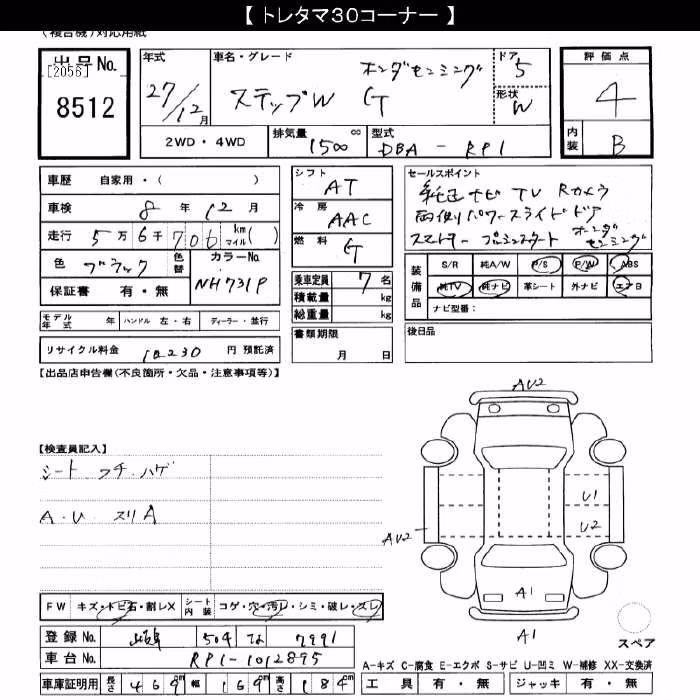 【 トレタマ30コーナー 】
(複合機)対応用紙
出品No.
[2056]
8512
年式
27/12月
車名・グレード
ホンダセンシング
ステップW G
ドア 5
形状 W
評価点
4
内装 B
2WD・4WD
排気量 1500 cc
型式 DBA - RP1
車歴 自家用・( )
車検 8年12月
走行 5万6千706 km マイル( )
色 ブラック
色替
カラーNo. NH731P
保証書 有・無
シフト AT
冷房 AAC
燃料 G
乗車定員 7名
積載量 kg
総重量 kg
書類期限
月 日
セールスポイント
純正ナビ TV Rカメラ
両側パワースライドドア
スマートキー プッシュスタート ホンダセンシング
装備品
S/R 純A/W P/S P/W ABS
純TV 純ナビ 革シート 外ナビ エアB
ナビ型番:
後日品
モデル年式 年 ハンドル 左・右 ディーラー・並行
リサイクル料金 10230 円 預託済
【出品店申告欄(不良箇所・欠品・注意事項等)】
【検査員記入】
シート フチ・ハゲ
A・U スリA
AU2
U1
U2
AU2
A1
A1
スペア
FW キズ・トビ石・割レX シート内装 コゲ・穴・汚レ・シミ・破レ・スレ
登録No. 岐阜 504 な 7991
車台No. RP1-1012895
車庫証明用 長さ 469cm 幅 169cm 高さ 184cm
A-キズ C-腐食 E-エクボ S-サビ U-凹ミ W-補修 XX-交換済
工具 有・無 ジャッキ 有・無